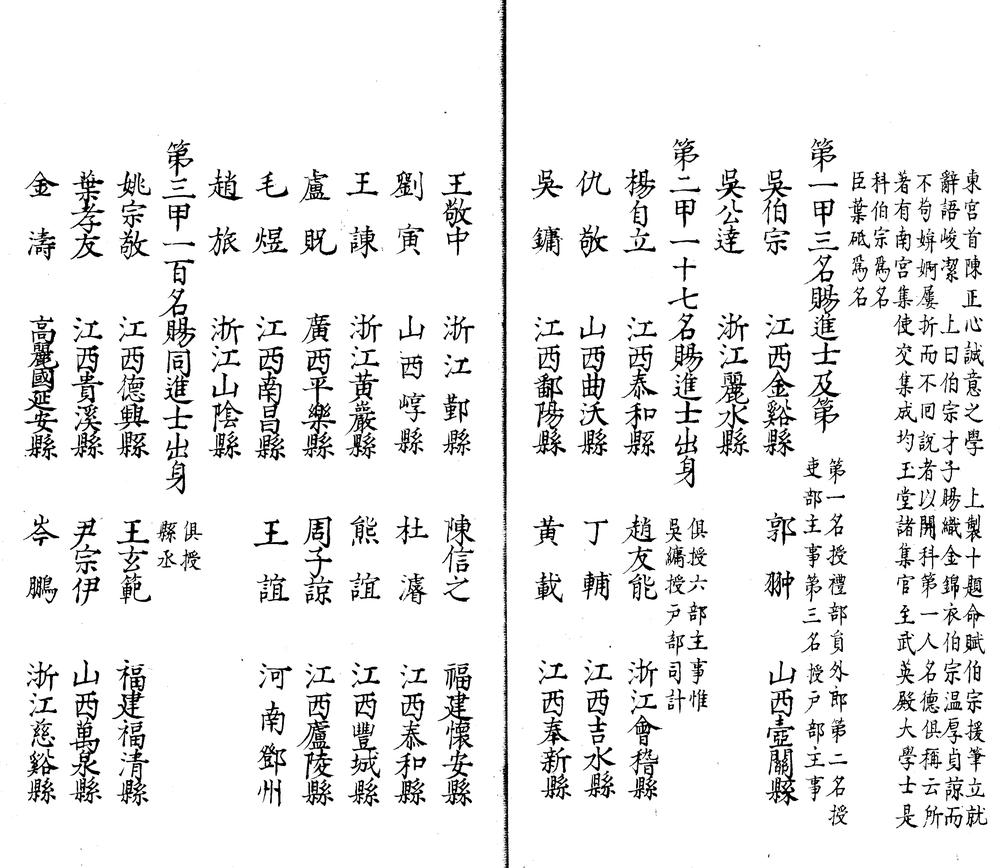 東宮首陳正心誠意之學　上製十題命賦伯宗援筆立就
辭語峻潔　上曰伯宗才子賜織金錦衣伯宗溫厚貞諒而
不茍媕婀屢折而不回說者以開科第一人名德俱稱云所
著有南宮集使交集成均玉堂諸集官至武英殿大學士是
科伯宗爲名
臣葉砥爲名
第一甲三名賜進士及第
第一名授禮部員外郎第二名授
吏部主事第三名授戶部主事
吳伯宗　江西金谿縣　郭翀　山西壺關縣
吳公達　浙江麗水縣
第二甲一十七名賜進士出身
俱授六部主事惟
吳鏞授戶部司計
楊自立　江西泰和縣　趙友能　浙江會稽縣
仇敬　山西曲沃縣　丁輔　江西吉水縣
吳鏞　江西鄱陽縣　黃載　江西奉新縣
王敬中　浙江鄞縣　陳信之　福建懷安縣
劉寅　山西崞縣　杜濬　江西泰和縣
王諫　浙江黃巖縣　熊誼　江西豐城縣
盧貺　廣西平樂縣　周子諒　江西廬陵縣
毛煜　江西南昌縣　王誼　河南鄧州
趙旅　浙江山陰縣
第三甲一百名賜同進士出身
俱授
縣丞
姚宗敬　江西德興縣　王玄範　福建福清縣
葉孝友　江西貴溪縣　尹宗伊　山西萬泉縣
金濤　高麗國延安縣　岑鵬　浙江慈谿縣